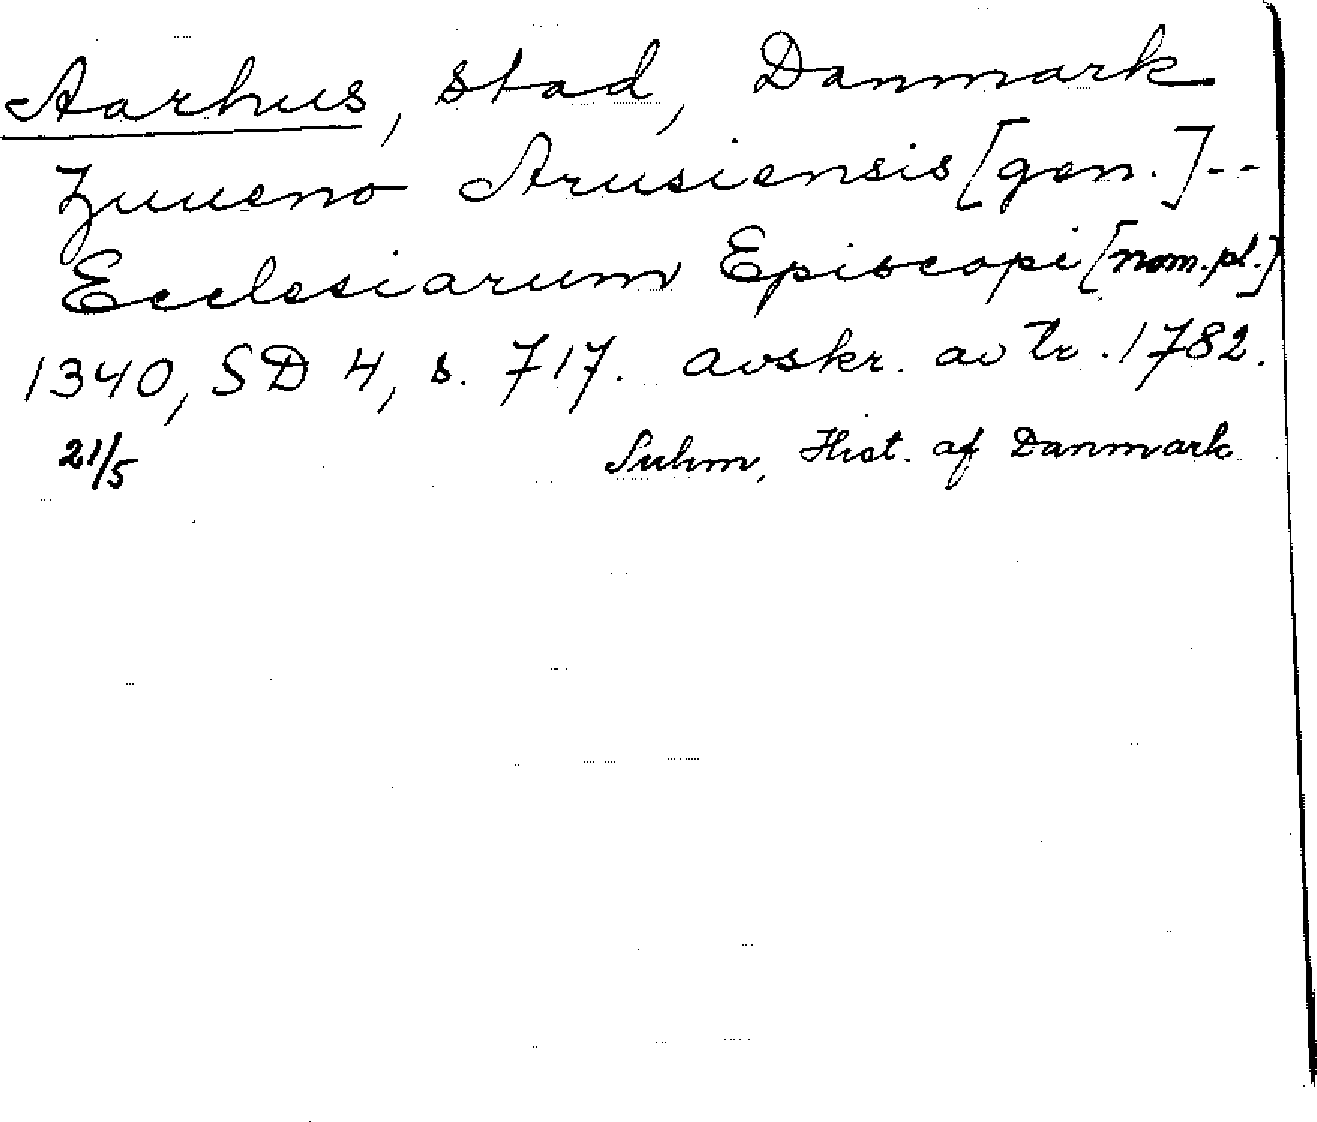 Aarhus, stad, Danmark
Zuueno Arusiensis [gen.]--
Ecclesiarum Episcopi [nom.pl.]
1340, SD 4, s. 717. avskr. av tr. 1782.
21/5 Suhm, Hist. af Danmark